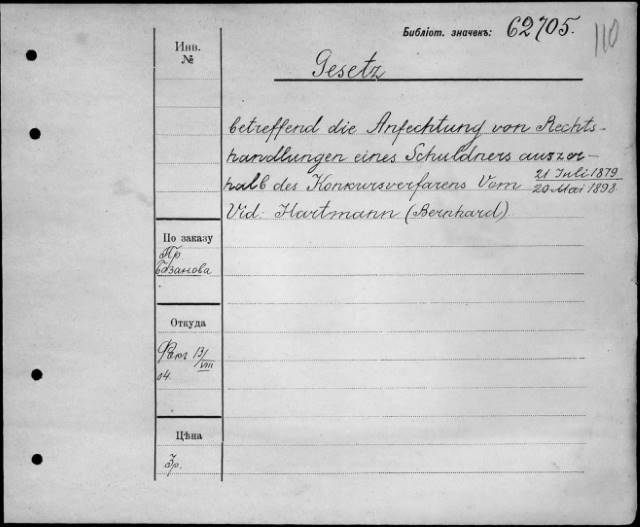 Библіот. значекъ: 62705.
110
Инв.
№
Gesetz
betreffend die Anfechtung von Rechts-
handlungen eines Schuldners auszer-
halb des Konkursverfarens Vom 21 Juli 1879
20 Mai 1898
Vid: Hartmann (Bernhard).
По заказу
Пр.
Базанова
Откуда
13/VIII
04.
Цѣна
3р.